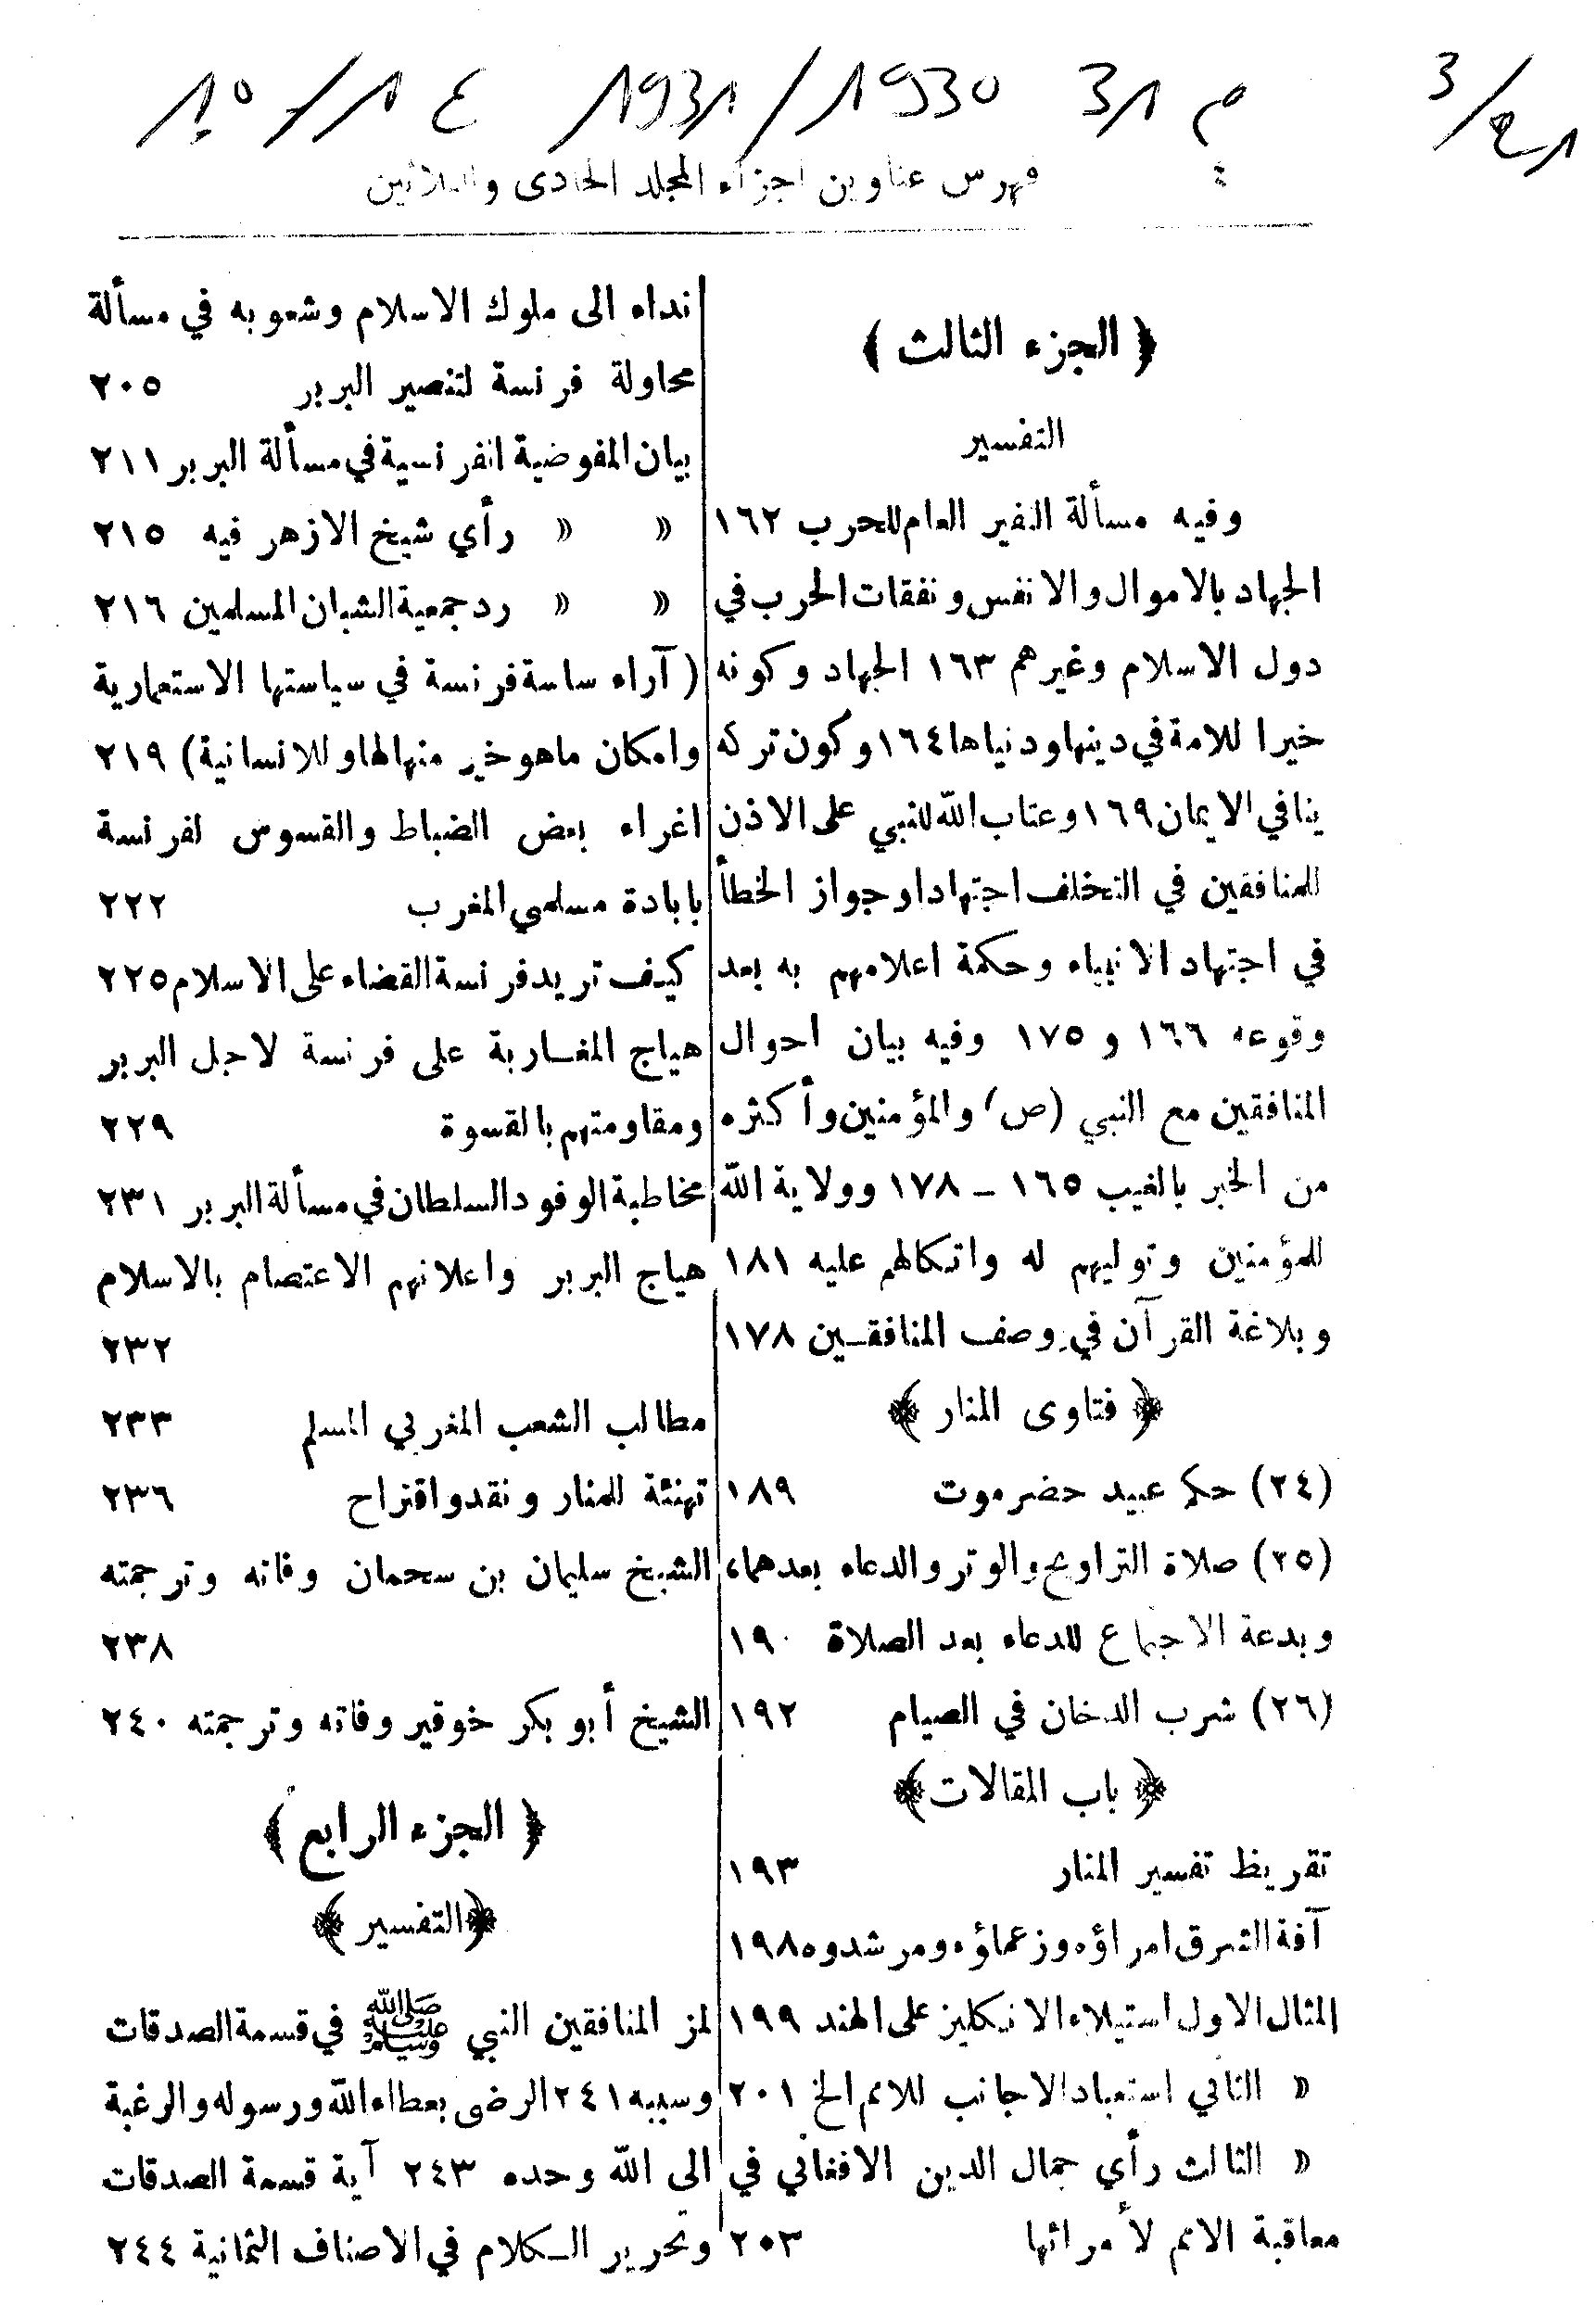 3/21
م 31 1930/1931 ع 1/10
٤
فهرس عناوين اجزاء المجلد الحادى والثلاثين
﴿ الجزء الثالث ﴾
التفسير
وفيه مسألة النفير العام للحرب ١٦٢
الجهاد بالاموال والانفس ونفقات الحرب في
دول الاسلام وغيرهم ١٦٣ الجهاد وكونه
خيرا للامة في دينها ودنياها ١٦٤ وكون تركه
ينافي الايمان ١٦٩ وعتاب الله للنبي على الاذن
للمنافقين في التخلف اجتهادا وجواز الخطأ
في اجتهاد الانبياء وحكمة اعلامهم به بعد
وقوعه ١٦٦ و ١٧٥ وفيه بيان احوال
المنافقين مع النبي (ص) والمؤمنين وأكثره
من الخبر بالغيب ١٦٥ – ١٧٨ وولاية الله
للمؤمنين وتوليهم له واتكالهم عليه ١٨١
وبلاغة القرآن في وصف المنافقين ١٧٨
﴿ فتاوى المنار ﴾
(٢٤) حكم عبيد حضرموت ١٨٩
(٢٥) صلاة التراويح والوتر والدعاء بعدهما،
وبدعة الاجتماع للدعاء بعد الصلاة ١٩٠
(٢٦) شرب الدخان في الصيام ١٩٢
﴿ باب المقالات ﴾
تقريظ تفسير المنار ١٩٣
آفة الشرق امراؤه وزعماؤه ومرشدوه ١٩٨
المثال الاول استيلاء الانكليز على الهند ١٩٩
« الثاني استعباد الاجانب للامم الخ ٢٠١
« الثالث رأي جمال الدين الافغاني في
معاقبة الامم لأمرائها ٢٠٣
نداء الى ملوك الاسلام وشعوبه في مسألة
محاولة فرنسة لتنصير البربر ٢٠٥
بيان المفوضية الفرنسية في مسألة البربر ٢١١
« « رأي شيخ الازهر فيه ٢١٥
« « رد جمعية الشبان المسلمين ٢١٦
(آراء ساسة فرنسة في سياستها الاستعمارية
وامكان ماهو خير منها لها وللانسانية) ٢١٩
اغراء بعض الضباط والقسوس لفرنسة
بابادة مسلمي المغرب ٢٢٢
كيف تريد فرنسة القضاء على الاسلام ٢٢٥
هياج المغاربة على فرنسة لاجل البربر
ومقاومتهم بالقسوة ٢٢٩
مخاطبة الوفود السلطان في مسألة البربر ٢٣١
هياج البربر واعلانهم الاعتصام بالاسلام
٢٣٢
مطالب الشعب المغربي المسلم ٢٣٣
تهنئة للمنار ونقد واقتراح ٢٣٦
الشيخ سليمان بن سحمان وفاته وترجمته
٢٣٨
الشيخ أبو بكر خوقير وفاته وترجمته ٢٤٠
﴿ الجزء الرابع ﴾
﴿التفسير ﴾
لمز المنافقين النبي ﷺ في قسمة الصدقات
وسببه ٢٤١ الرضى بعطاء الله ورسوله والرغبة
الى الله وحده ٢٤٣ آية قسمة الصدقات
وتحرير الكلام في الاصناف الثمانية ٢٤٤